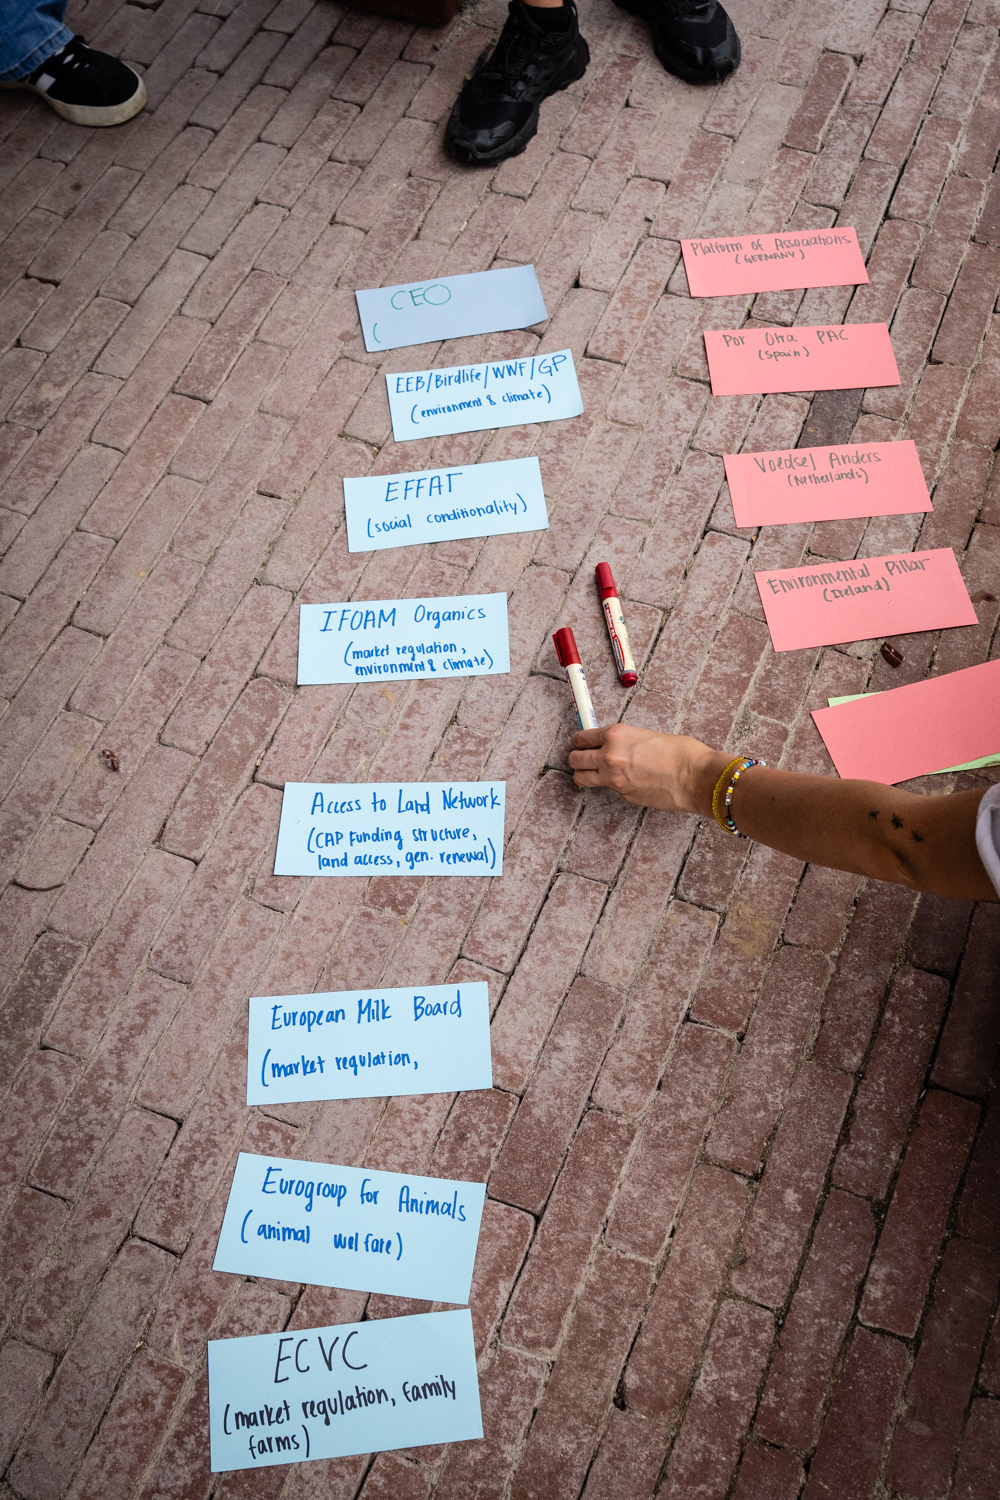 CEO
(
EEB/Birdlife/WWF/GP
(environment & climate)
EFFAT
(social conditionality)
IFOAM Organics
(market regulation,
environment & climate)
Access to Land Network
(CAP Funding structure,
land access, gen. renewal)
European Milk Board
(market regulation,
Eurogroup for Animals
(animal welfare)
ECVC
(market regulation, family
farms)
Platform of Associations
(GERMANY)
Por Otra PAC
(Spain)
Voedsel Anders
(Netherlands)
Environmental Pillar
(Ireland)